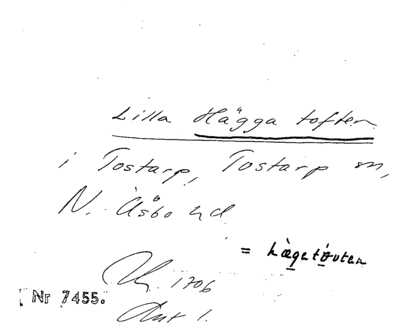 Lilla Hägga toften
i Tostarp, Tostarp sn,
N. Åsbo hd
= hägatòuten
1706
Nr 7455.
Akt 1.